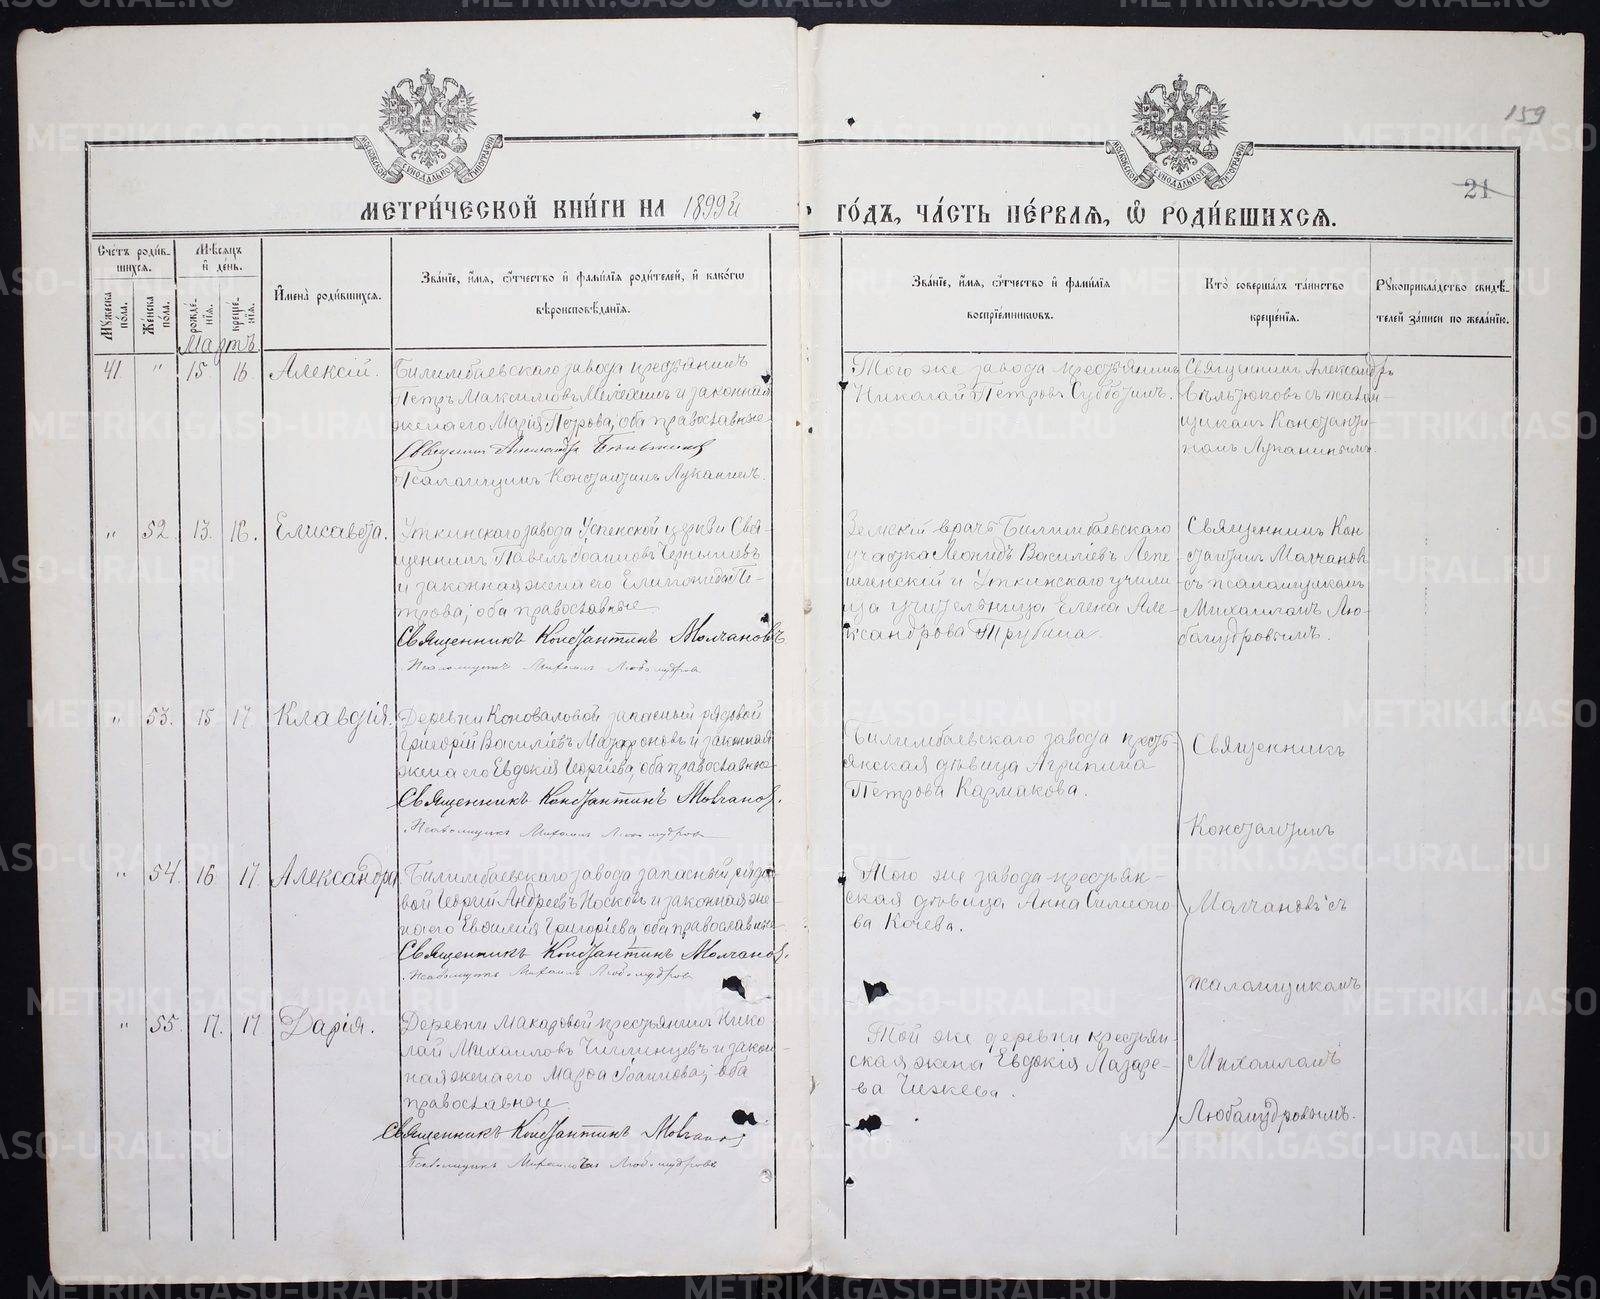 159
21
МЕТРИ́ЧЕСКОЙ КНИ́ГИ НА 1899й
ГО́ДЪ, ЧА́СТЬ ПЕ́РВАѦ, Ѡ҆ РОДИ́ВШИХСѦ.
Сче́тъ роди́в-
шихся.
Мѣ́сяцъ
и де́нь.
Мꙋ́жеска по́ла.
Же́нска по́ла.
рожде́-нїѧ.
креще́-нїѧ.
И҆мена̀ роди́вшихсѧ.
Зва́нїе, и҆́мѧ, ѻ҆́тчество и҆ фами́лїѧ роди́телей, и҆ како́гѡ
вѣроисповѣ́данїѧ.
Зва́нїе, и҆́мѧ, ѻ҆́тчество и҆ фами́лїѧ
воспрїе́мникѡвъ.
Кто̀ соверша́лъ та́инство
креще́нїѧ.
Рꙋкоприкла́дство свидѣ́-
телей за́писи по жела́нїю.
Мартъ
41. " 15 16. Алексій.
Билимбаевскаго завода крестьянинъ
Петръ Максимовъ и законная
жена его Марія Петрова; оба православные
Священникъ Александръ
Псаломщикъ Константинъ Луканинъ.
Того же завода крестьянинъ
Николай Петровъ Субботинъ.
Священникъ Александръ
съ псалом-
щикомъ Константи-
номъ Луканинымъ.
" 52. 13. 18. Елисавета.
Уткинскаго завода Успенской церкви Свя-
щенникъ Павелъ Іоанновъ Чернышевъ
и законная жена его Пе-
трова; оба православные
Священникъ Константинъ Молчановъ
Псаломщикъ Михаилъ Любомудровъ
Земскій врачъ Билимбаевскаго
участка Леонидъ Василіевъ Лепе-
шенскій и Уткинскаго учили-
ща учительница Елена Але-
ксандрова Трубина.
Священникъ Кон-
стантинъ Молчановъ
съ псаломщикомъ
Михаиломъ Лю-
бомудровымъ.
" 53. 15. 17. Клавдія.
Деревни Коноваловой запасный рядовой
Григорій Василіевъ и законная
жена его Евдокія Георгіева, оба православные
Священникъ Константинъ Молчановъ.
Псаломщикъ Михаилъ Любомудровъ
Билимбаевскаго завода кресть-
янская дѣвица Агрипина
Петрова Кармакова.
Священникъ
Константинъ
Молчановъ съ
псаломщикомъ
Михаиломъ
Любомудровымъ.
" 54. 16. 17. Александра
Билимбаевскаго завода запасный рядо-
вой Георгій Андреевъ Носковъ и законная же-
на его Григоріева, оба православные
Священникъ Константинъ Молчановъ.
Псаломщикъ Михаилъ Любомудровъ
Того же завода крестьян-
ская дѣвица Анна Симеоно-
ва Кочева.
" 55. 17. 17 Дарія.
Деревни Макаровой крестьянинъ Нико-
лай Михаиловъ и закон-
ная жена его Марѳа Іоаннова; оба
православные
Священникъ Константинъ Молчановъ
Псаломщикъ Михаилъ Любомудровъ
Той же деревни крестьян-
ская жена Евдокія Лазаре-
ва Чижева.